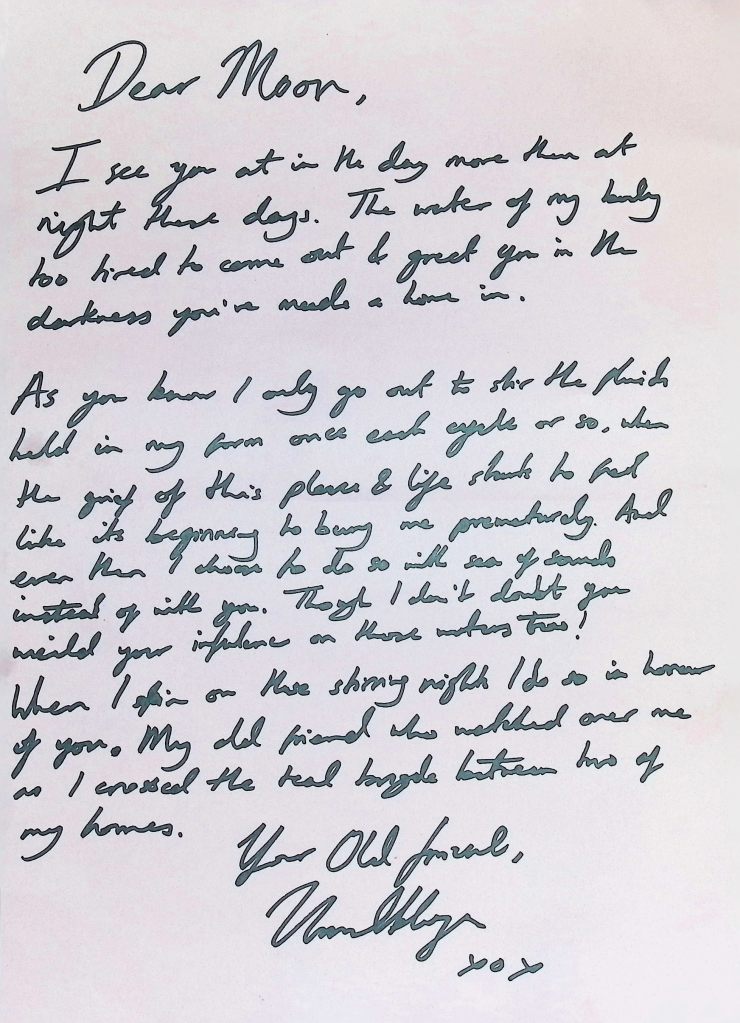 Dear Moon,
I see you at in the day more then at
night these days. The water of my body
too tired to come out & greet you in the
darkness you've made a home in.
As you know I only go out to stir the fluids
held in my form once each cycle or so, when
the grief of this place & life starts to feel
like its beginning to bury me prematurely. And
even then I choose to do so with sea of sounds
instead of with you. Though I don't doubt you
wield your influence on those waters too!
When I spin on these stirring nights I do so in honour
of you. My old friend who watched over me
as I crossed the teal bridge between two of
my homes.
Your Old friend,
xox